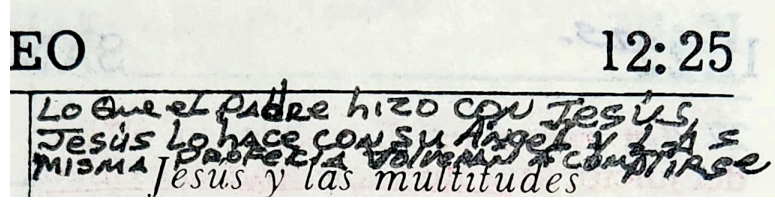 EO 12:25
Lo que el PADRE hizo CON Jesús,
Jesús Lo hace CON SU ANgel Y LAS
MISMA PROFECIA VOLVERAN A COMPLIRSE
Jesús y las multitudes